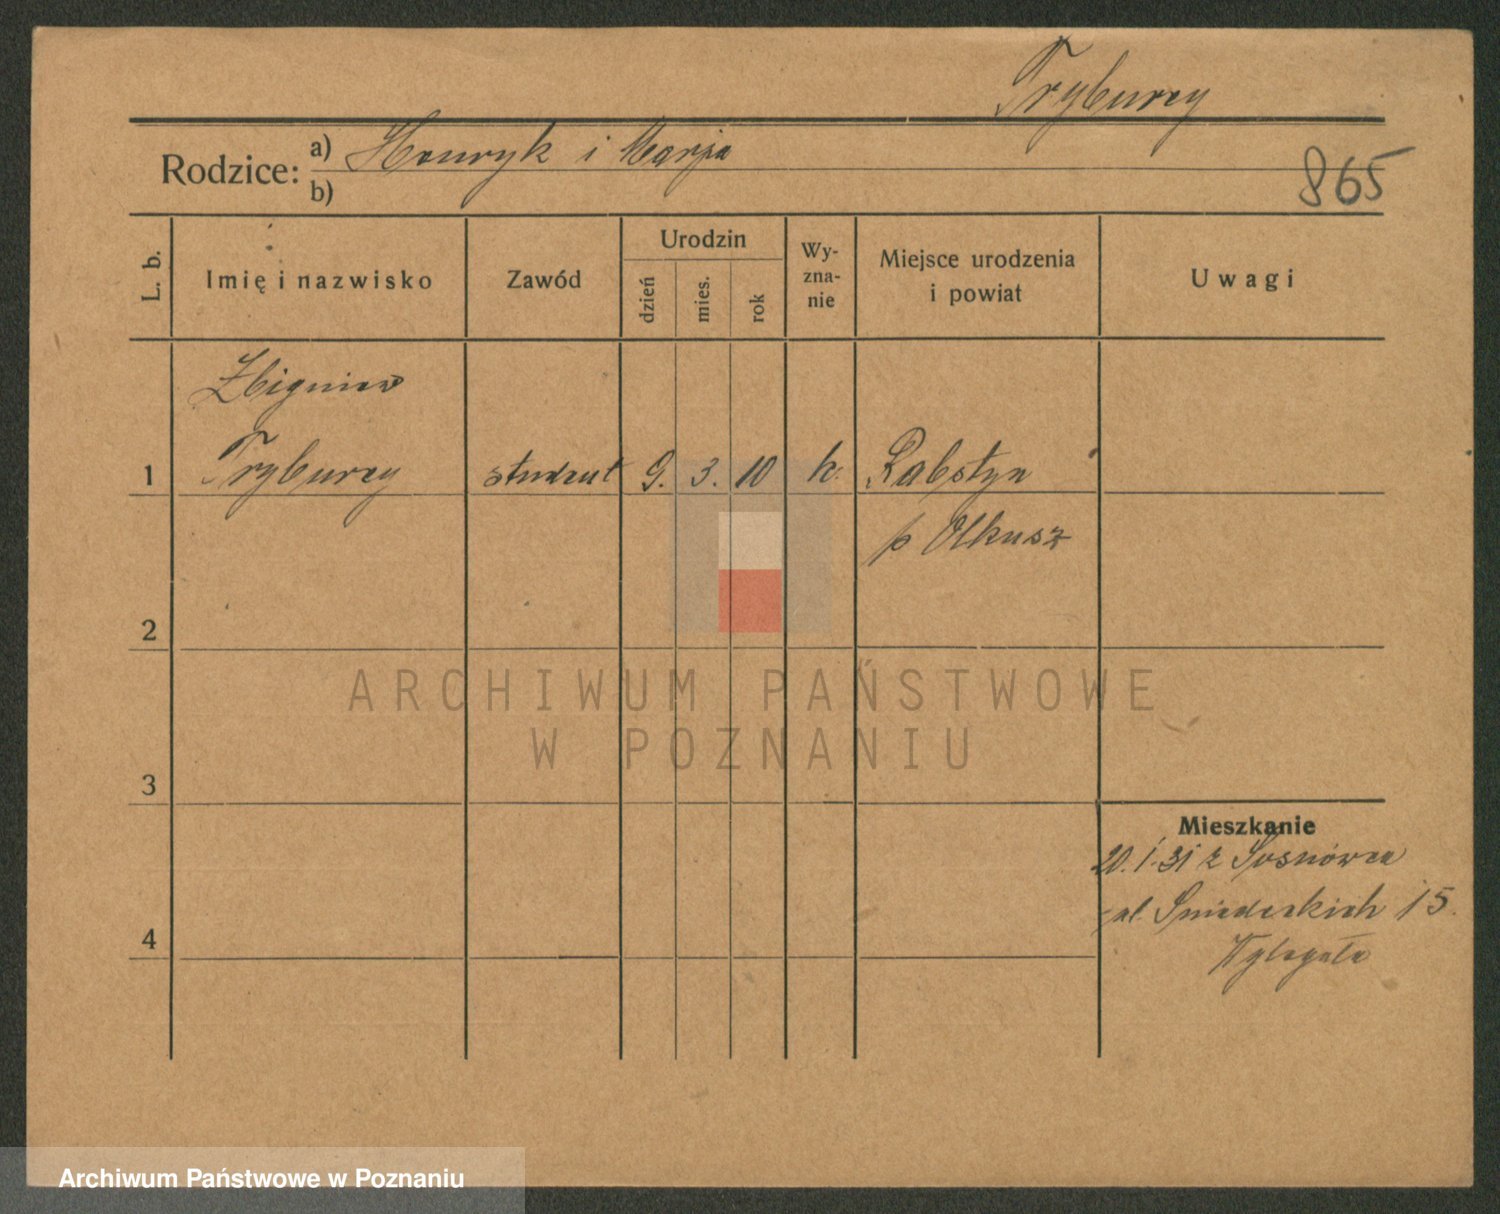 Tryburcy
Rodzice: a) Henryk i Marja
b)
865
L. b.
Imię i nazwisko
Zawód
Urodzin
dzień
mies.
rok
Wy-
zna-
nie
Miejsce urodzenia
i powiat
Uwagi
Zbigniew
1 Tryburcy student 9. 3. 10 k. Rabstyn
p Olkusz
2
ARCHIWUM PAŃSTWOWE
W POZNANIU
3
Mieszkanie
20. 1. 31 z Sosnówca
ul. Śniadeckich 15.
4
Archiwum Państwowe w Poznaniu